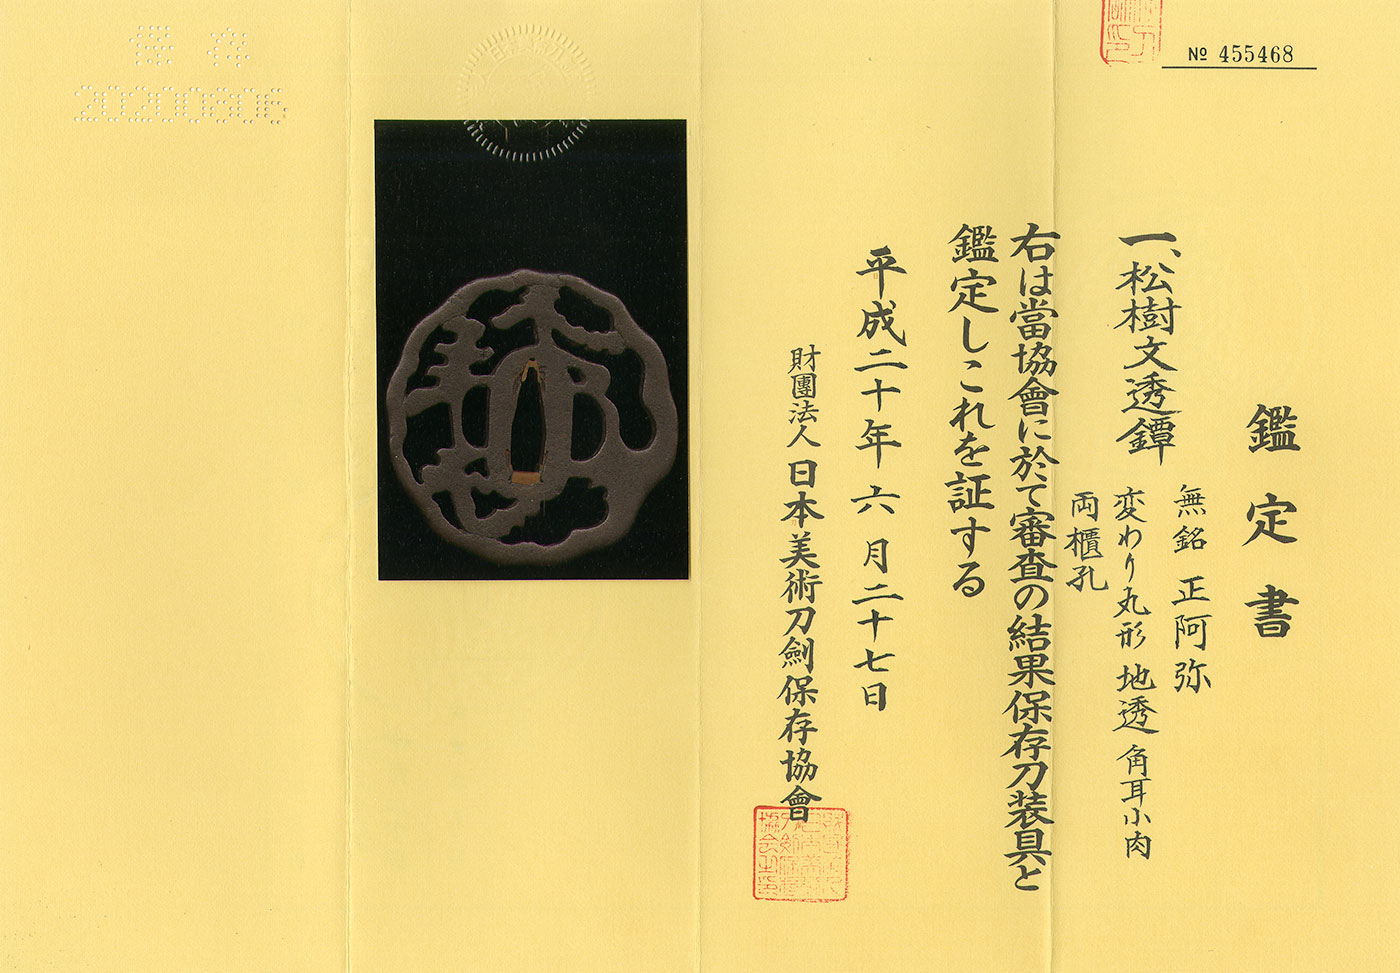 № 455468
鑑定書
一、松樹文透鐔
無銘 正阿弥
変わり丸形 地透 角耳小肉
両櫃孔
右は當協會に於て審査の結果保存刀装具と
鑑定しこれを証する
平成二十年六月二十七日
財團法人 日本美術刀劍保存協會